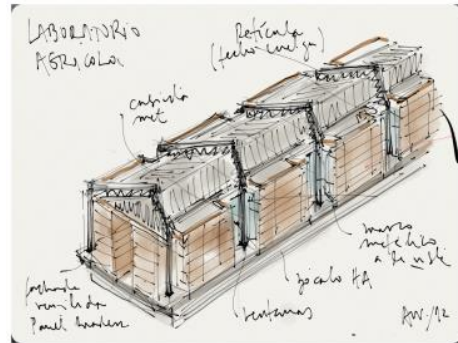 LABORATORIO
AGRICOLA
Retícula
(techo
cubierta
met
marco
metálico
a la vista
zócalo HA
ventanas
fachada
ventilada
Panel madera
AW./12